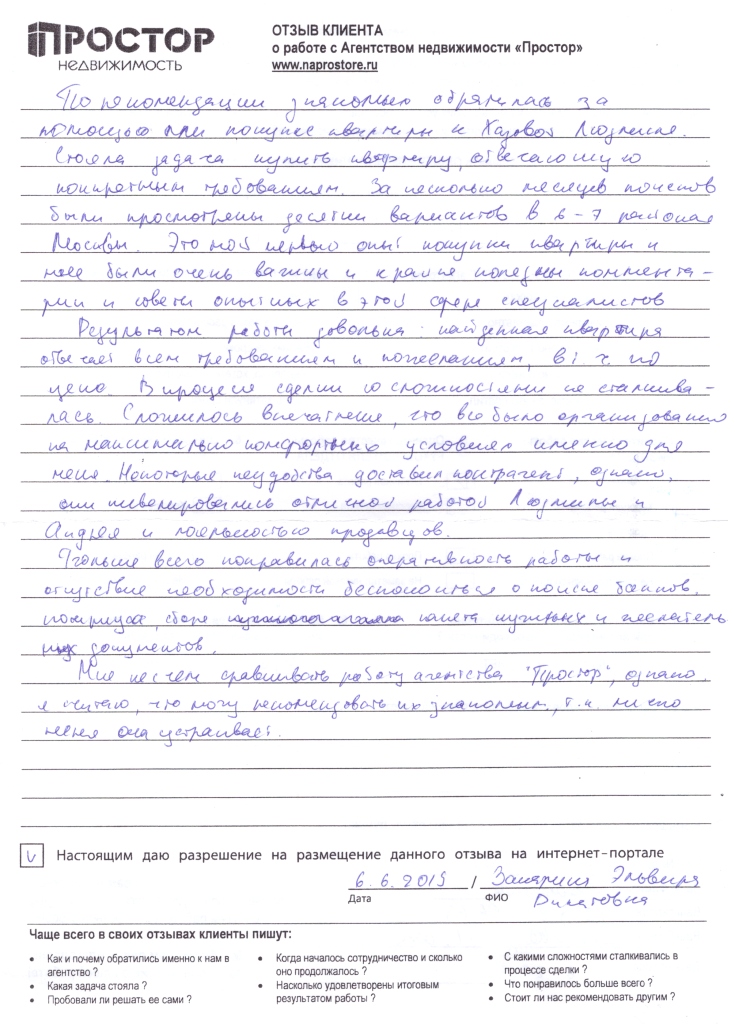 ПРОСТОР
НЕДВИЖИМОСТЬ
ОТЗЫВ КЛИЕНТА
о работе с Агентством недвижимости «Простор»
www.naprostore.ru
По рекомендации знакомых обратилась за
помощью при покупке квартиры к Людмиле.
Стояла задача купить квартиру, отвечающую
конкретным требованиям. За несколько месяцев поисков
были просмотрены десятки вариантов в 6-7 районах
Москвы. Это мой первый опыт покупки квартиры и
мне были очень важны и крайне полезны коммента-
рии и советы опытных в этой сфере специалистов
Результатом работы довольна: найденная квартира
отвечает всем требованиям и пожеланиям, в т.ч. по
цене. В процессе сделки со сложностями не сталкива-
лась. Сложилось впечатление, что все было организовано
на максимально комфортных условиях именно для
меня. Некоторые неудобства доставил контрагент, однако,
они нивелировались отличной работой Людмилы и
Андрея и лояльностью продавцов.
Больше всего понравилась оперативность работы и
отсутствие необходимости беспокоиться о поиске банков,
нотариуса, сборе пакета нужных и желатель
ных документов.
Мне не с чем сравнивать работу агентства "Простор", однако,
я считаю, что могу рекомендовать их знакомым, т.к. лично
меня она устраивает.
V Настоящим даю разрешение на размещение данного отзыва на интернет-портале
6.6.2015 / Эльвира
Дата ФИО
Чаще всего в своих отзывах клиенты пишут:
• Как и почему обратились именно к нам в агентство ?
• Какая задача стояла ?
• Пробовали ли решать ее сами ?
• Когда началось сотрудничество и сколько оно продолжалось ?
• Насколько удовлетворены итоговым результатом работы ?
• С какими сложностями сталкивались в процессе сделки ?
• Что понравилось больше всего ?
• Стоит ли нас рекомендовать другим ?